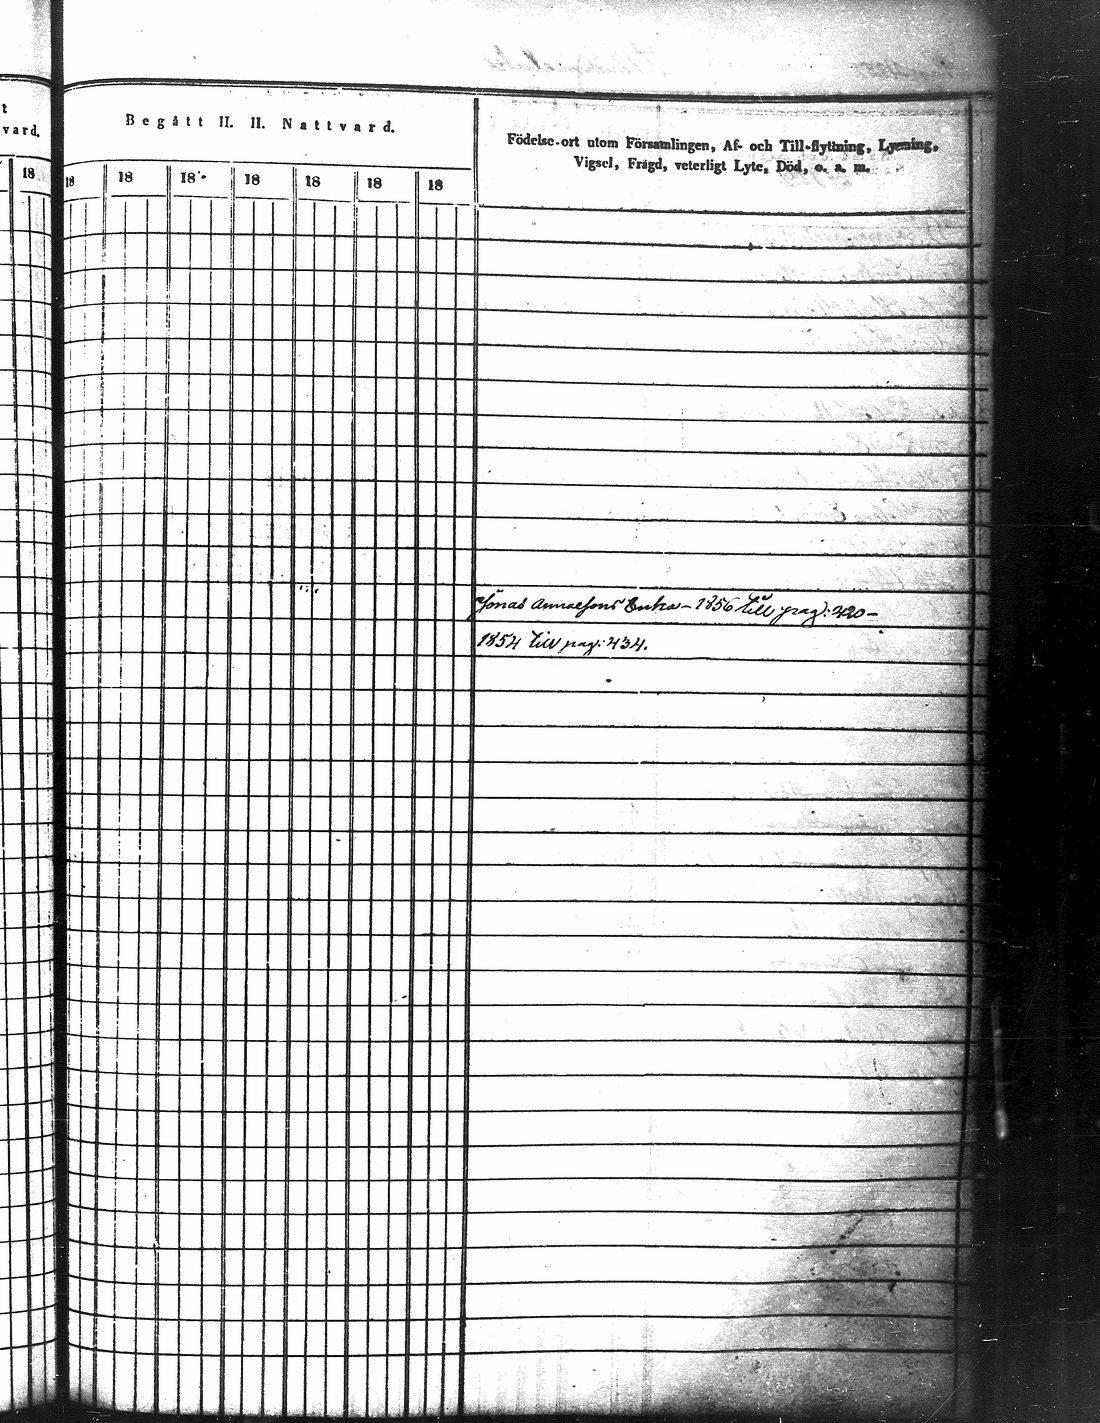 t
vard.
18
Begått H. H. Nattvard.
18 18 18 18 18 18 18
Födelse-ort utom Församlingen, Af- och Till-flyttning, Lysning,
Vigsel, Frägd, veterligt Lyte, Död, o. a. m.
Jonas Enka - 1856 till pag: 420 -
1854 till pag: 434.